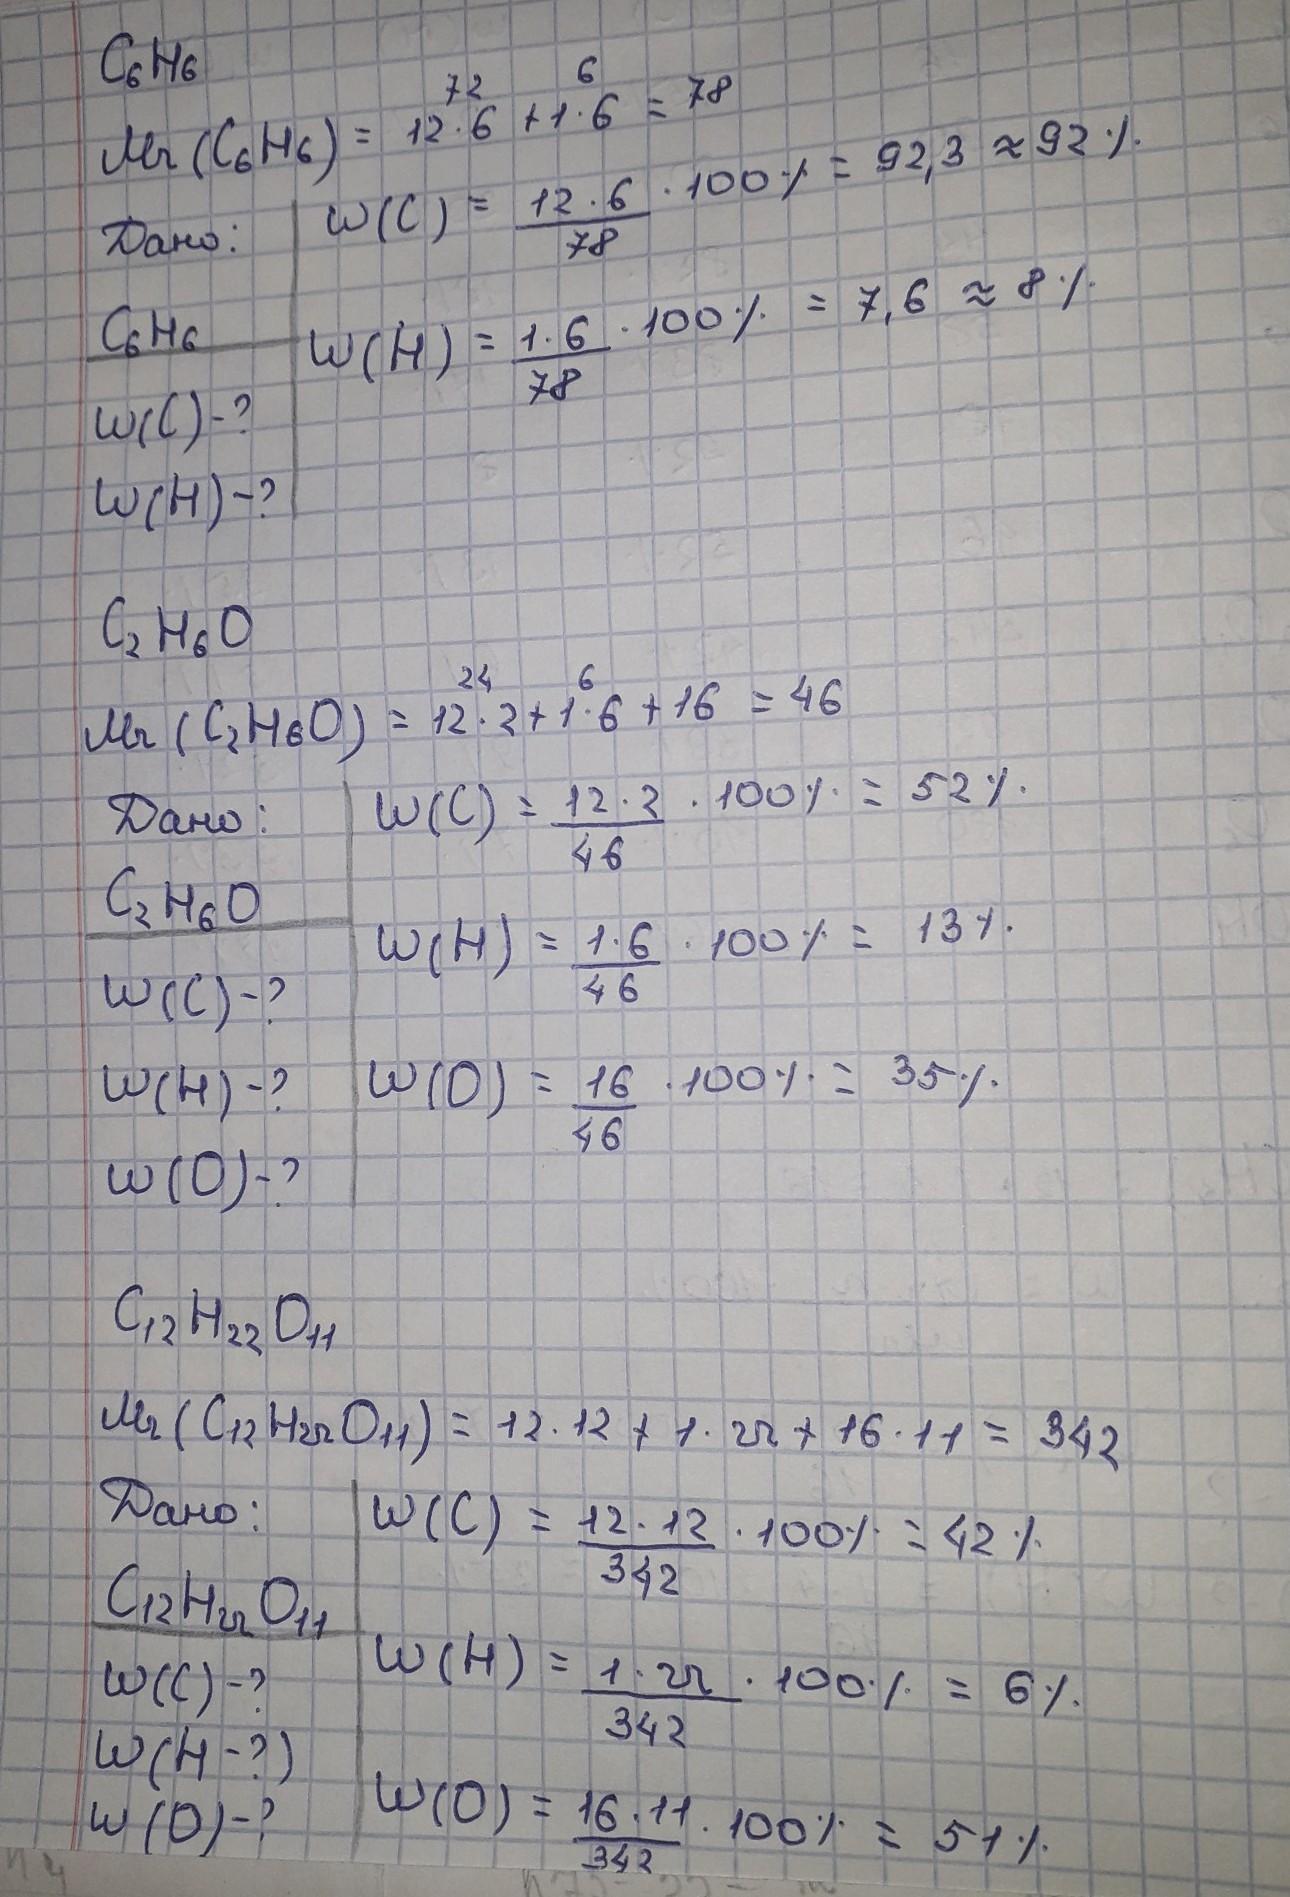 C₆H₆
Mr(C₆H₆) = 12·6 + 1·6 = 78
72 6
Дано:
C₆H₆
W(C)-?
W(H)-?
W(C) = 12·6/78 · 100% = 92,3 ≈ 92%.
W(H) = 1·6/78 · 100% = 7,6 ≈ 8%.
C₂H₆O
24 6
Mr(C₂H₆O) = 12·2 + 1·6 + 16 = 46
Дано:
C₂H₆O
W(C)-?
W(H)-?
W(O)-?
W(C) = 12·2/46 · 100% = 52%.
W(H) = 1·6/46 · 100% = 13%.
W(O) = 16/46 · 100% = 35%.
C₁₂H₂₂O₁₁
Mr(C₁₂H₂₂O₁₁) = 12·12 + 1·22 + 16·11 = 342
Дано:
C₁₂H₂₂O₁₁
W(C)-?
W(H-?)
W(O)-?
W(C) = 12·12/342 · 100% = 42%.
W(H) = 1·22/342 · 100% = 6%.
W(O) = 16·11/342 · 100% = 51%.